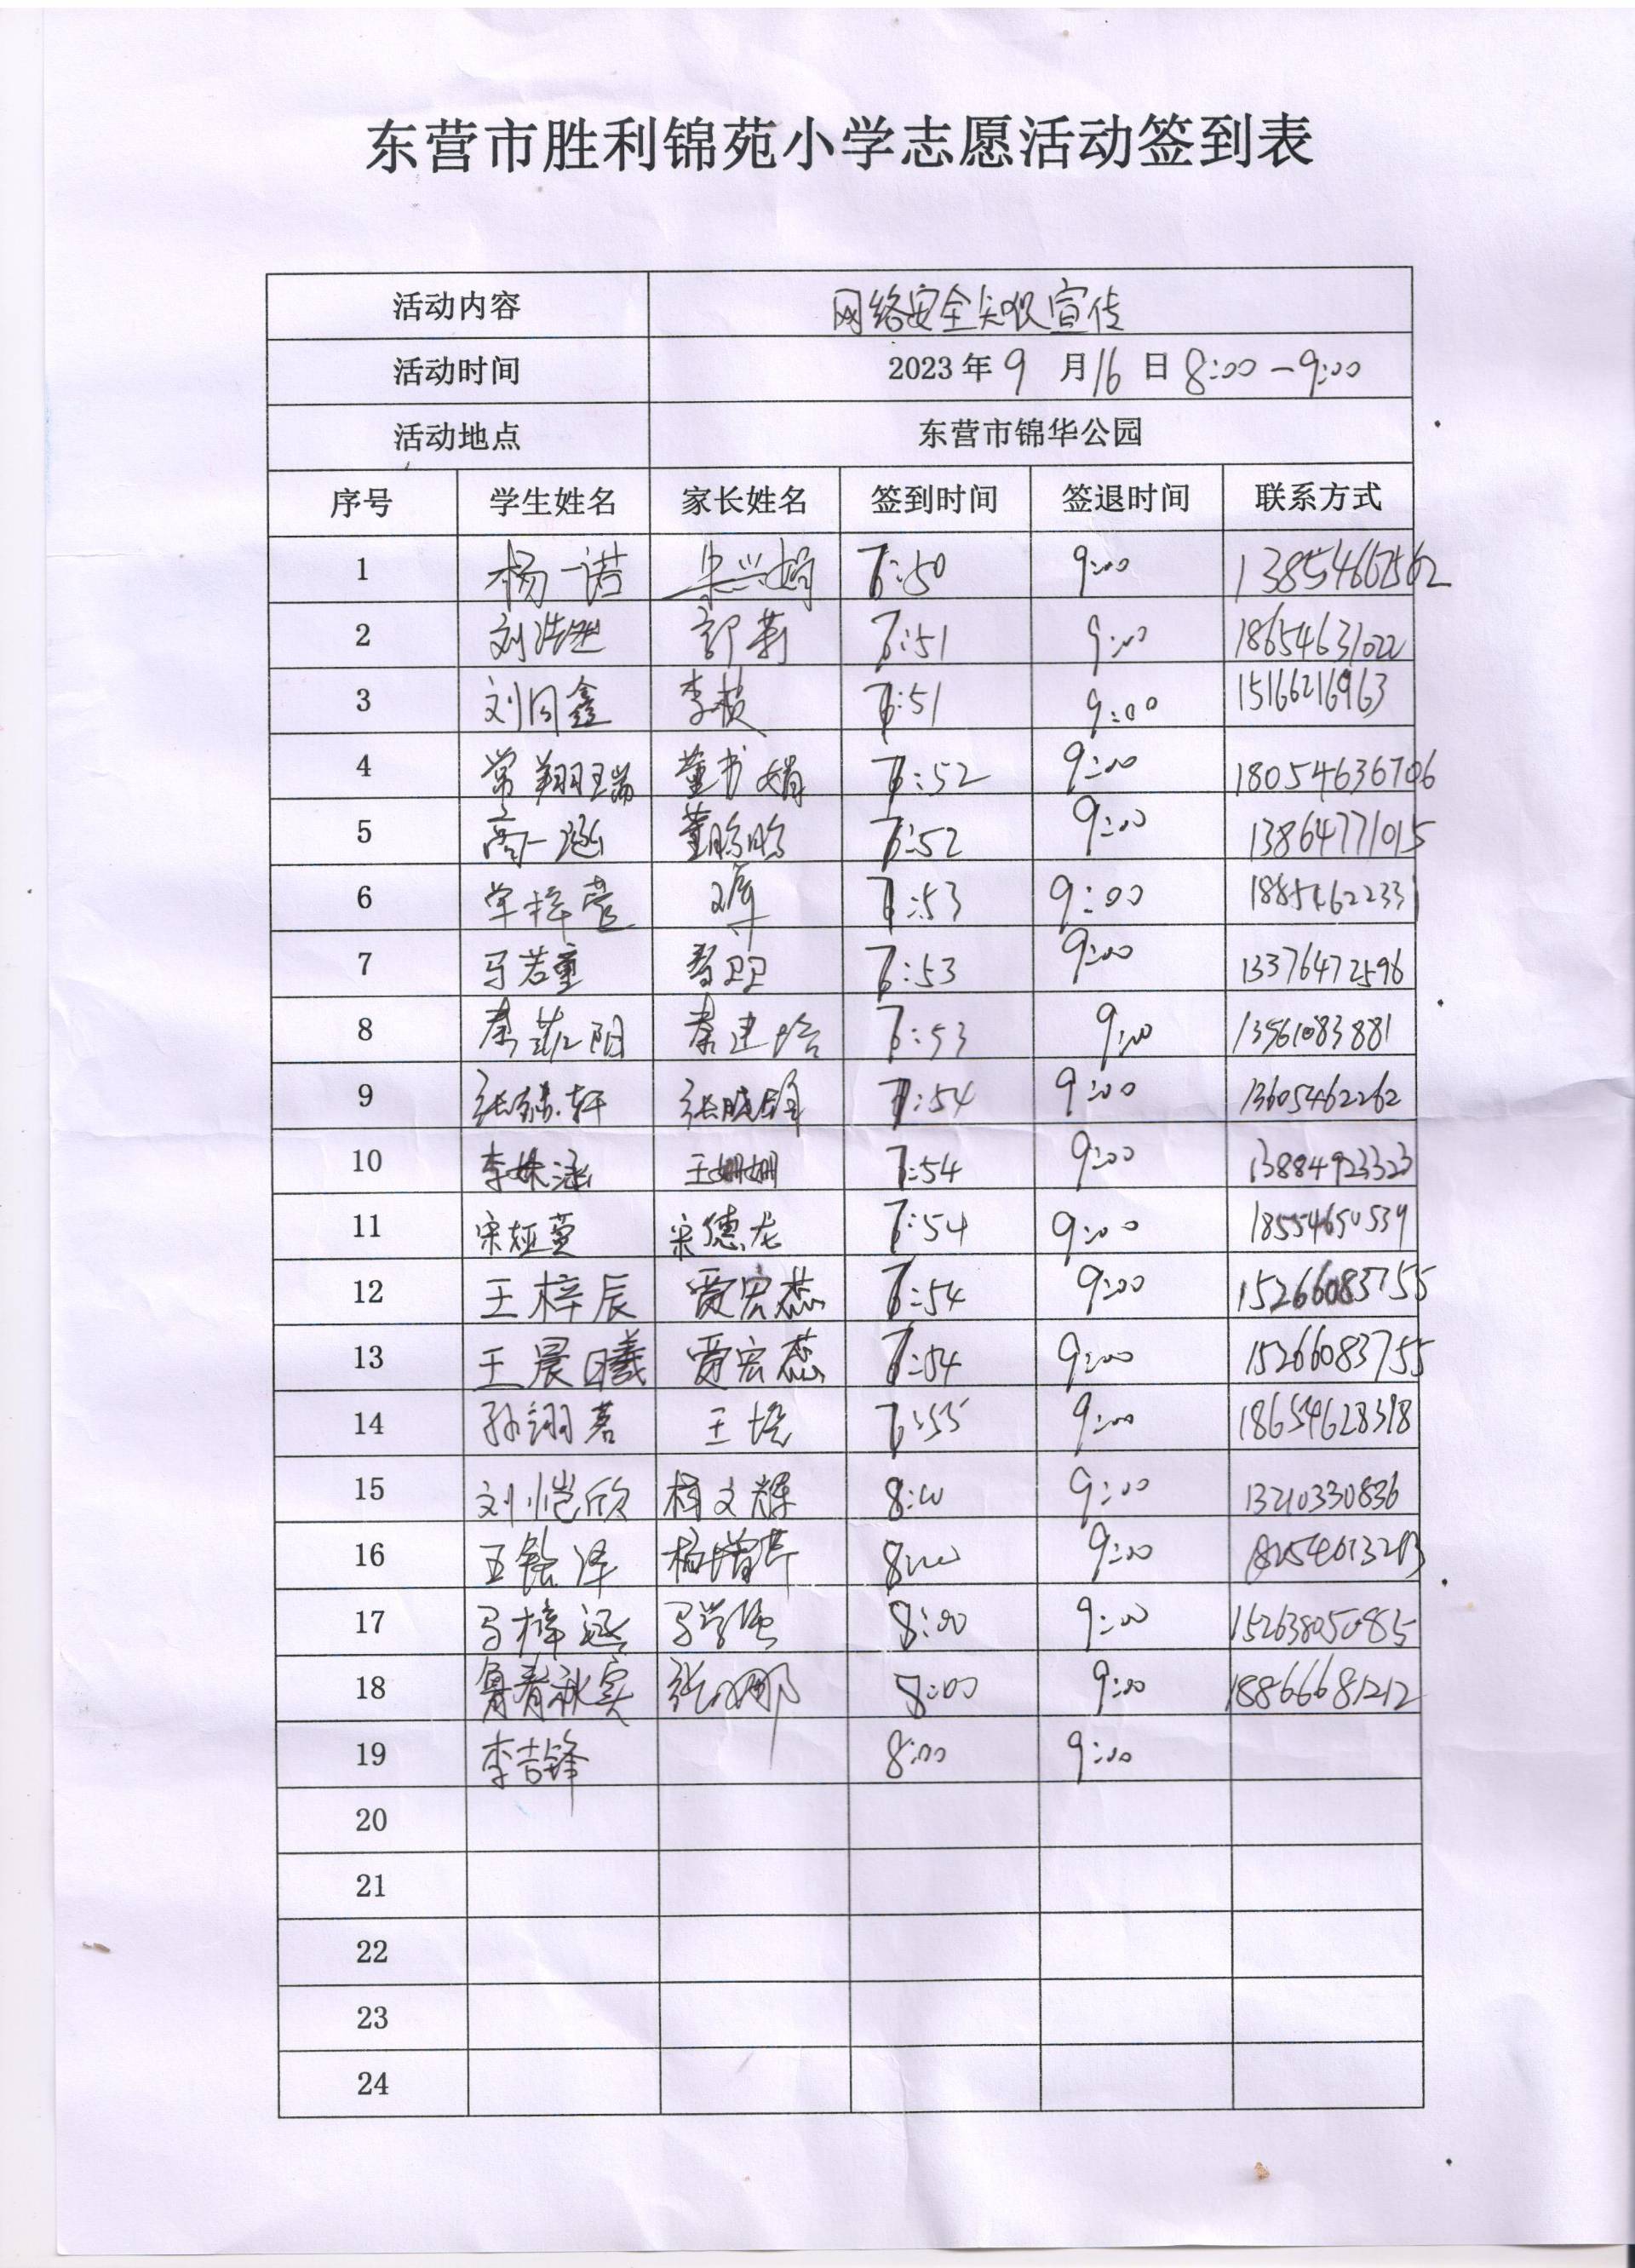 东营市胜利锦苑小学志愿活动签到表
活动内容 网络安全知识宣传
活动时间 2023年9月16日8:00-9:00
活动地点 东营市锦华公园
序号 学生姓名 家长姓名 签到时间 签退时间 联系方式
1 杨一诺 朱兴娟 7:50 9:00
2 刘浩然 7:51 9:00 18654631022
3 刘同鑫 7:51 9:00 15166216963
4 常翔瑞 董书娟 7:52 9:00 18054636706
5 高一涵 董盼盼 7:52 9:00 13864771015
6 7:53 9:00 18854622331
7 马若童 7:53 9:00 13376472596
8 秦菀阳 7:53 9:00 13561083881
9 张赫轩 张晓锋 7:54 9:00 13605462262
10 李姝涵 王姗姗 7:54 9:00 13884923323
11 宋娅萱 宋德龙 7:54 9:00 18554650539
12 王梓辰 贾宏蕊 7:54 9:00 15266083755
13 王晨曦 贾宏蕊 7:54 9:00 15266083755
14 孙翊茗 7:55 9:00 18654628318
15 刘恺欣 8:00 9:00 13210330836
16 8:00 9:00
17 马梓涵 马学强 8:00 9:00
18 8:00 9:00 18866681212
19 李吉锋 8:00 9:00
20
21
22
23
24